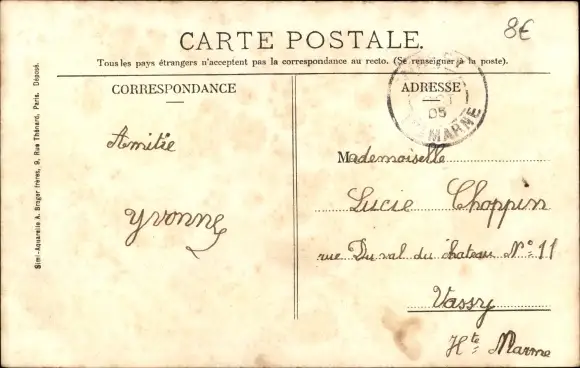 8€
CARTE POSTALE.
Tous les pays étrangers n'acceptent pas la correspondance au recto. (Se renseigner à la poste).
CORRESPONDANCE
ADRESSE
05
MARNE
Simi-Aquarelle A. Breger frères, 9, Rue Thénard, Paris. Déposé.
Amitée
Yvonne
Mademoiselle
Lucie Choppin
rue Du val du chateau N° 11
Vassy
Hte Marne